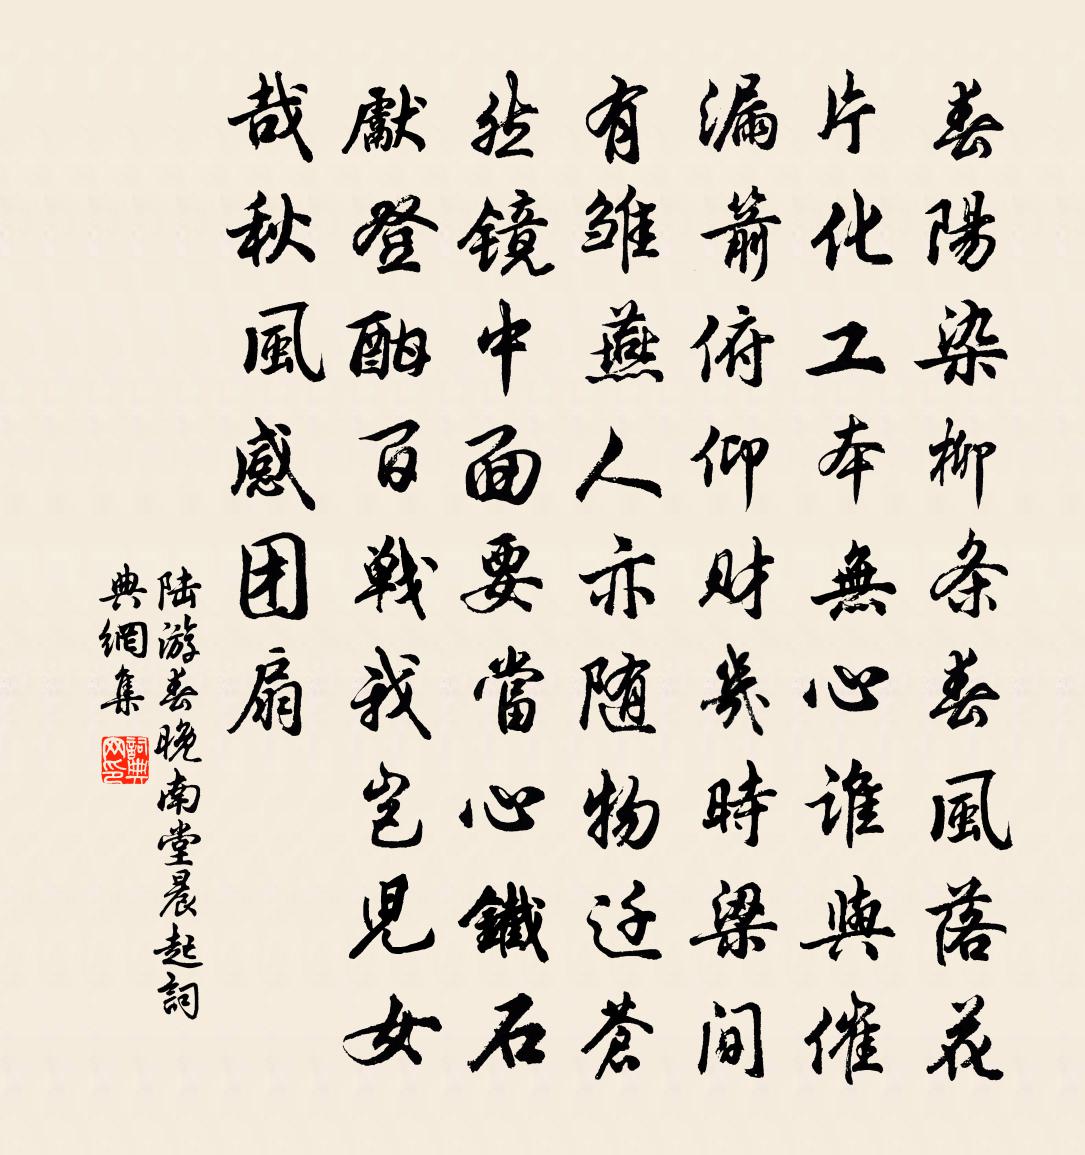 春陽染柳条春風落花
片化工本無心誰與催
漏箭俯仰财幾時梁间
有雏燕人亦随物迁蒼
然镜中面要當心鐵石
獻登酣百戦我岂児女
哉秋風感团扇
陆游春晚南堂晨起詞
典網集
詞典网印